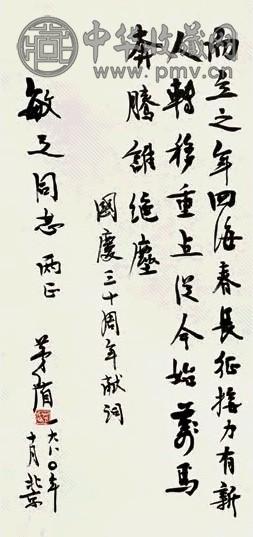 中华收藏网
www.pmv.cn
而立之年四海春長征接力有新
人轉移重点從今始萬馬
奔騰誰绝塵
國慶三十周年献词
敏之同志 两正
茅盾
一九八〇年
十月 北京